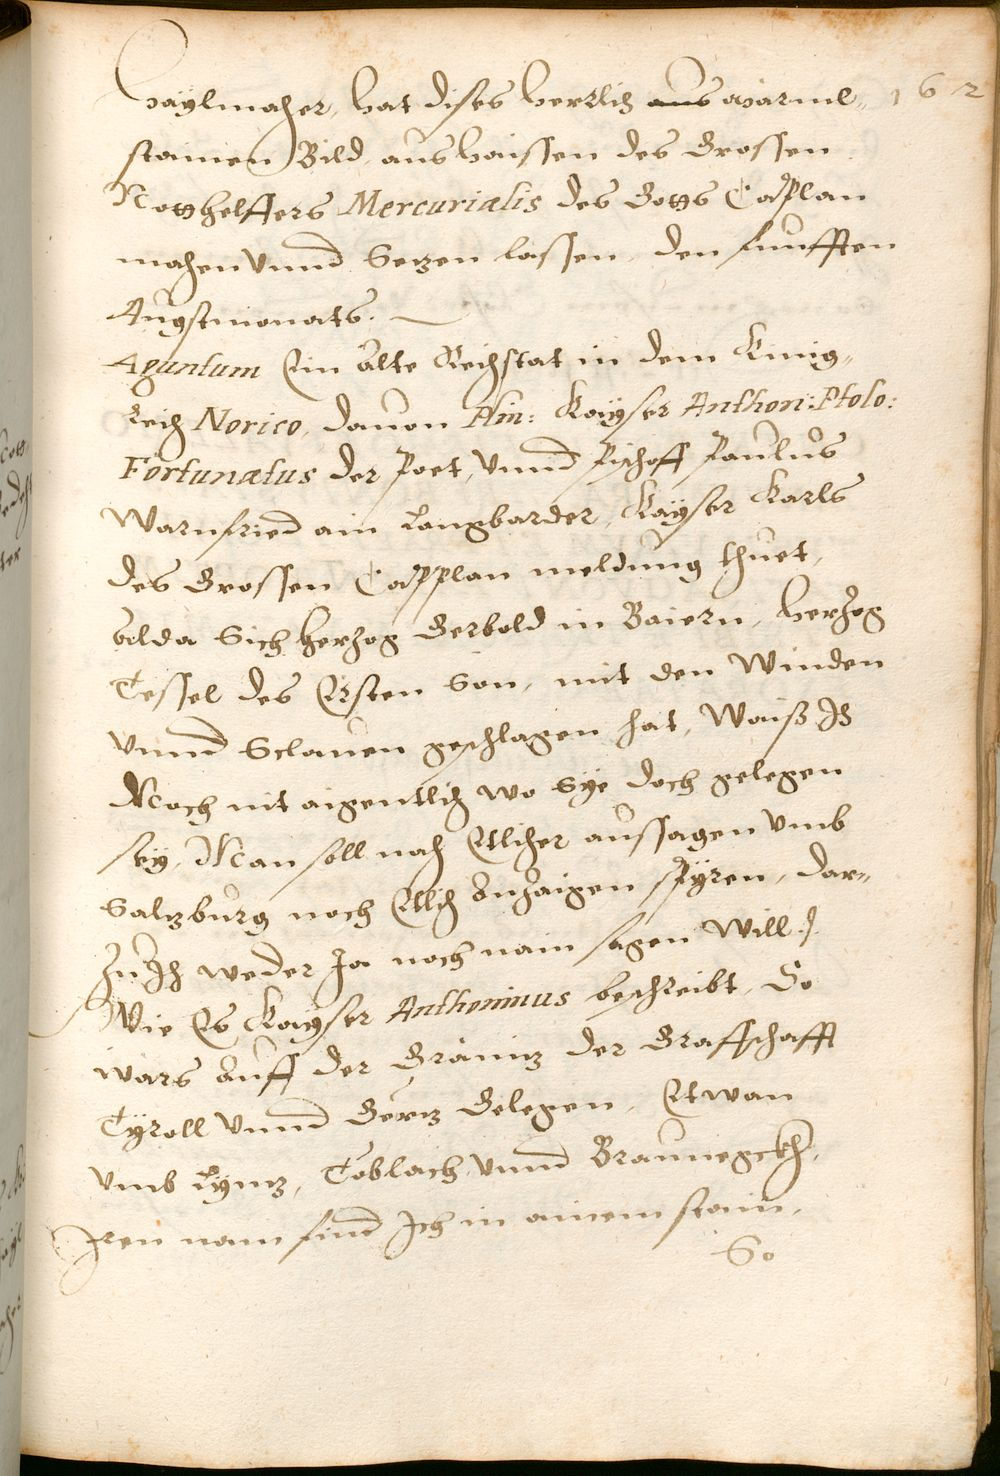 haylmacher, hat dises herrlich aus märmel„ 162
stainen Bild, aus haissen des Grossen
Notthelffers Mercurialis des Gotts Caplan
machen vnnd Setzen lassen, den funfften
Augstmonats.
Aguntum Ein Alte Reichstat in dem Künig„
reich Norico, dauon Plin: Kayser Anthon: Ptolo:
Fortunatus der Poet, vnnd Pischoff Paulus
Warnfried ain Langbarder, Kayser Karls
des Grossen Capplan meldung thuet,
alda Sich Herzog Gerbold in Baiern, herzog
Tessel des Ersten Son, mit den Winden
vnnd Sclauen geschlagen hat, Waiß Ich
Noch nit aigentlich wo Sye doch gelegen
sey, Man soll nach Etlicher aussagen vmb
Salzburg noch Etlich Anzaigen spüren, dar„
Zu Ich weder Ja noch nain sagen Will.
Wie Es Kayser Anthoninus beschreibt, So
wärs Auff der Gränitz der Graffschafft
Tyroll vnnd Görtz Gelegen, Etwan
vmb Lyntz, Toblach vnnd Braunegckh,
Iren nam find Ich in ainem stain,
So